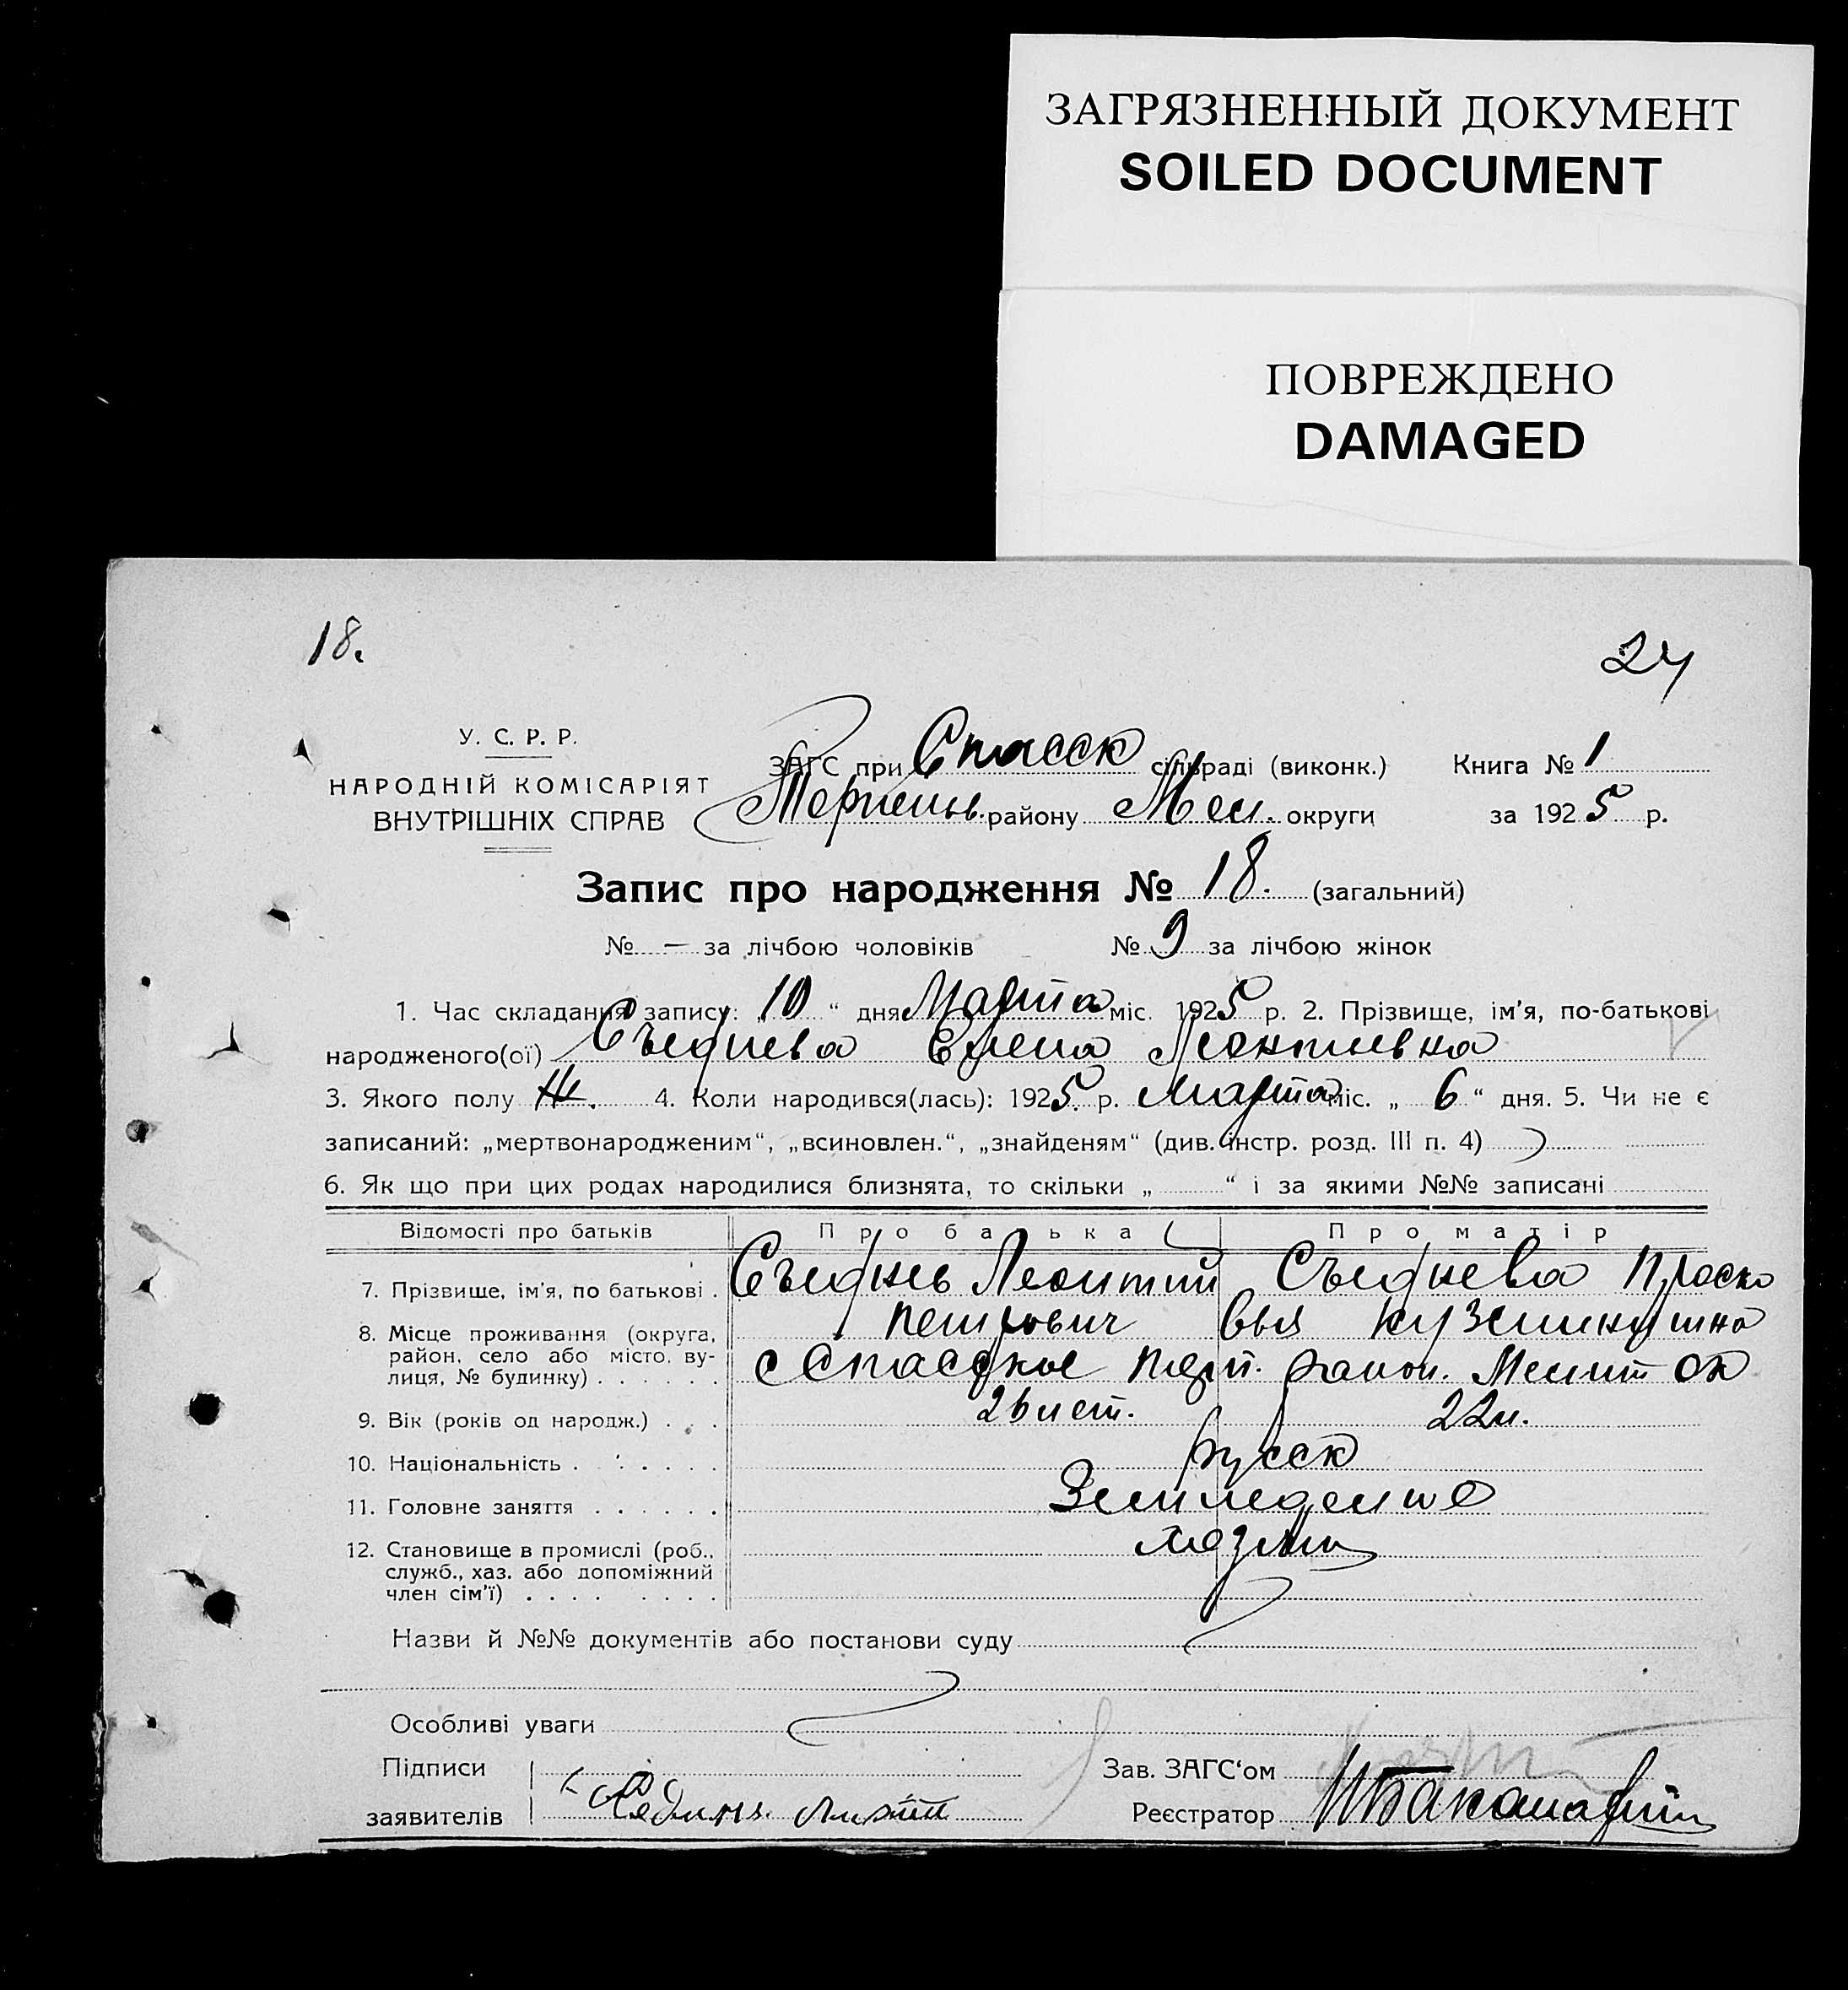 ЗАГРЯЗНЕННЫЙ ДОКУМЕНТ
SOILED DOCUMENT
ПОВРЕЖДЕНО
DAMAGED
18.
24
У. С. Р. Р.
НАРОДНІЙ КОМІСАРІЯТ
ВНУТРІШНІХ СПРАВ
ЗАГС при Спасск сільраді (виконк.) Книга № 1
Терпеньев. району Мел. округи за 1925 р.
Запис про народження № 18. (загальний)
№ — за лічбою чоловіків № 9 за лічбою жінок
1. Час складання запису: „ 10 “ дня Марта міс. 1925 р. 2. Прізвище, ім'я, по-батькові
народженого(ої) Съеднева Елена Леонтиевна
3. Якого полу Ж. 4. Коли народився(лась): 1925 р. Марта міс. „ 6 “ дня. 5. Чи не є
записаний: „мертвонародженим“, „всиновлен.“, „знайденям“ (див. інстр. розд. III п. 4)
6. Як що при цих родах народилися близнята, то скільки „ “ і за якими №№ записані
Відомості про батьків Про батька Про матір
7. Прізвище, ім'я, по батькові . Съеднев Леонтий Съеднева Праско
Петрович вья
8. Місце проживання (округа, район, село або місто, ву-
лиця, № будинку) . . . . . . с Спасское Терп. район. Мелит ок
9. Вік (років од народж.) . . . 26 лет. 22 л.
10. Національність . . . . . . русск
11. Головне заняття . . . . . . Земледелие
12. Становище в промислі (роб.,
служб., хаз. або допоміжний
член сім'ї) . . . . . . . .
Назви й №№ документів або постанови суду
Особливі уваги
Підписи
заявителів
Зав. ЗАГС‘ом
Реєстратор